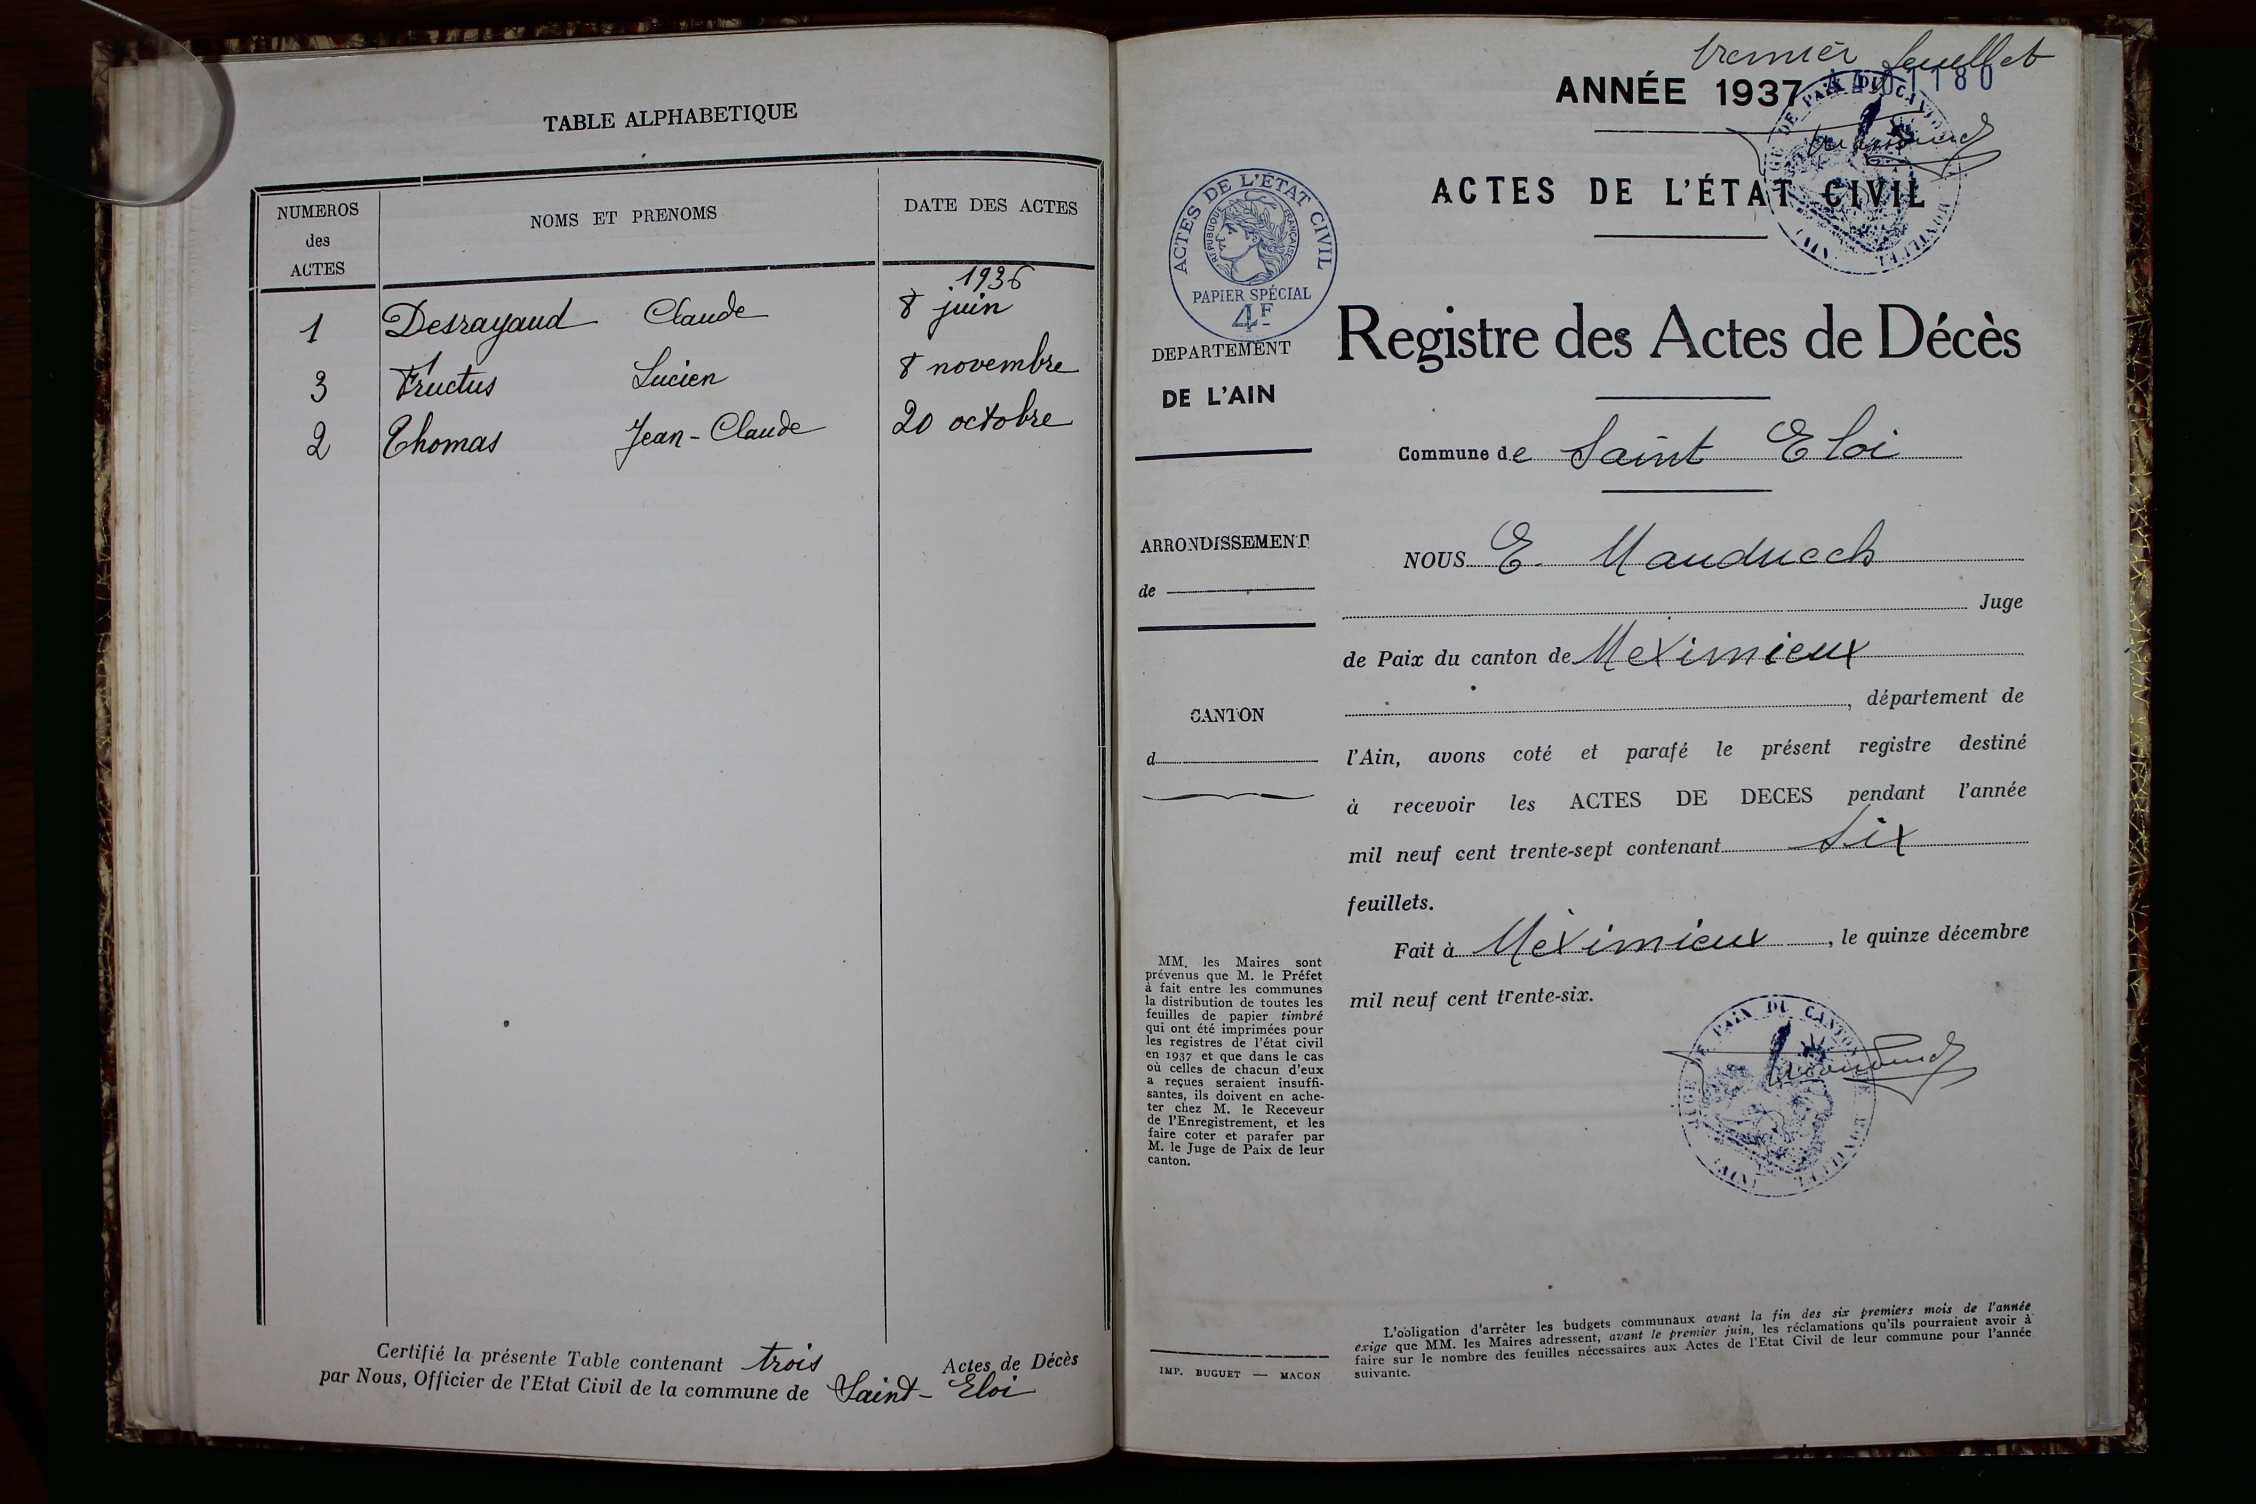 TABLE ALPHABETIQUE
NUMEROS des ACTES NOMS ET PRENOMS DATE DES ACTES
1936
1 Desrayaud Claude 8 juin
3 Fructus Lucien 8 novembre
2 Thomas Jean-Claude 20 octobre
Certifié la présente Table contenant trois Actes de Décès
par Nous, Officier de l'Etat Civil de la commune de Saint-Eloi
premier feuillet
ANNÉE 1937
1180
ACTES DE L'ÉTAT CIVIL
ACTES DE L'ÉTAT CIVIL
RÉPUBLIQUE FRANÇAISE
PAPIER SPÉCIAL
4F
DEPARTEMENT
DE L'AIN
ARRONDISSEMENT
de
CANTON
d
MM. les Maires sont
prévenus que M. le Préfet
à fait entre les communes
la distribution de toutes les
feuilles de papier timbré
qui ont été imprimées pour
les registres de l'état civil
en 1937 et que dans le cas
où celles de chacun d'eux
a reçues seraient insuffi-
santes, ils doivent en ache-
ter chez M. le Receveur
de l'Enregistrement, et les
faire coter et parafer par
M. le Juge de Paix de leur
canton.
IMP. BUGUET — MACON
Registre des Actes de Décès
Commune de Saint Eloi
NOUS E.
Juge
de Paix du canton de Meximieux
, département de
l'Ain, avons coté et parafé le présent registre destiné
à recevoir les ACTES DE DECES pendant l'année
mil neuf cent trente-sept contenant Six
feuillets.
Fait à Méximieux, le quinze décembre
mil neuf cent trente-six.
JUGE DE PAIX DU CANTON
L'obligation d'arrêter les budgets communaux avant la fin des six premiers mois de l'année
exige que MM. les Maires adressent, avant le premier juin, les réclamations qu'ils pourraient avoir à
faire sur le nombre des feuilles nécessaires aux Actes de l'Etat Civil de leur commune pour l'année
suivante.